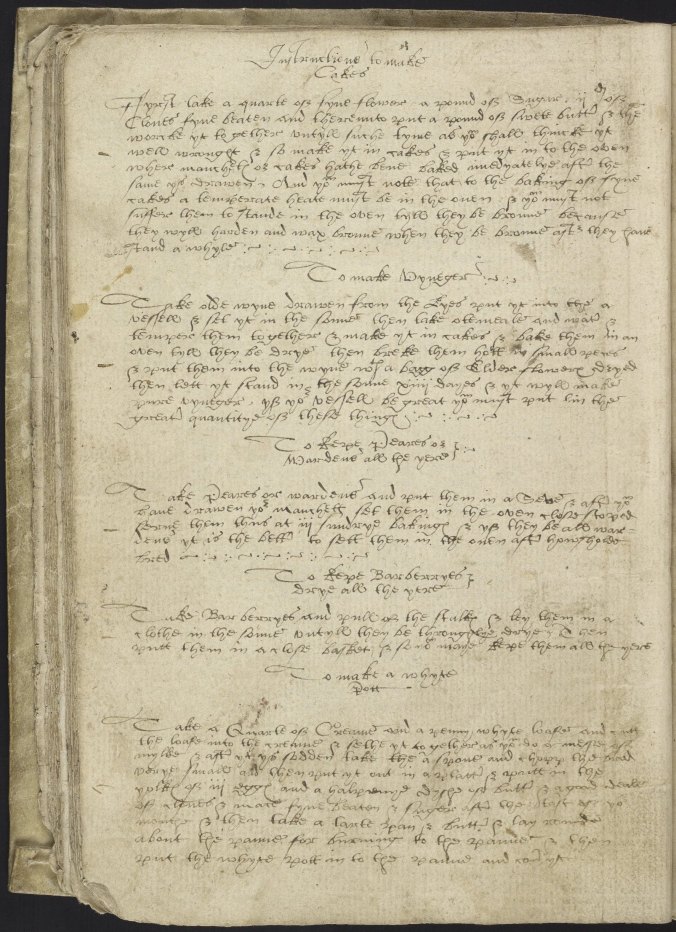 Instructions to make
Cakes
Fyrst take a quarte of fyne flower a pownd of Suger, ij d of
Cloves fyne beaten and thereinto put a pound of swete butter & the
worcke yt together untyll suche tyme as yo shall thincke yt
well wrought & so make yt in cakes & put yt in to the oven
where manchett or cakes hathe bene baked imedyatelye after the
same ys drawen, And yo must note that to the baking of fyne
cakes a temperate heate must be in the oven & yo must not
suffer them to stande in the oven tyll they be browne because
they wyll harden and wax browne when they be browne after they have
stand a whyle
To make Vyneger
Take olde wyne drawen from the Lyes put yt into a
vessell & set yt in the sonne then take otemeale and water &
temper them together & make yt in cakes & bake them in an
oven tyll they be drye then breke them hott in small peces
& put them into the wyne wt a bagg of Elder flowers dryed
then lett yt stand in the sonne xiiij dayes & yt wyll make
pure vyneger, yf yor vessell be great yo must put in the
greater quantitye of these things
To Kepe Peares or
Wardens all the yere
Take Peares or wardens and put them in a & after yo
have drawen yor manchett set them in the oven close stoped
serve them thus at iij sundrye bakings & yf they be all war-
dens yt is the better to sett them in the oven after howsholde
bred
To Kepe Barberryes
drye all the yere
Take Barberryes and pull of the stalkes & ley them in a
clothe in the sonne untyll they be throughlye drye, Then
putt them in a close basket & so yo maye kepe them all the yere
To make a whyte
Pott
Take a Quarte of Creame and a penny whyte loafe and cutt
the loafe into the creame & sethe yt together as yo do a messe of
mylke & after yt ys sodden take the a spone and choppe the bred
verye small and then put yt out in a platter & putt in the
yolkes of iij egges and a halpenye dyshe of butter & a good deale
of cloves & mace fyne beaten & suger after the tast of yor
mouthe & then take a large pan & butter & lay rounde
about the panne for burning to the panne & then
put the whyte pott in to the panne and cover yt